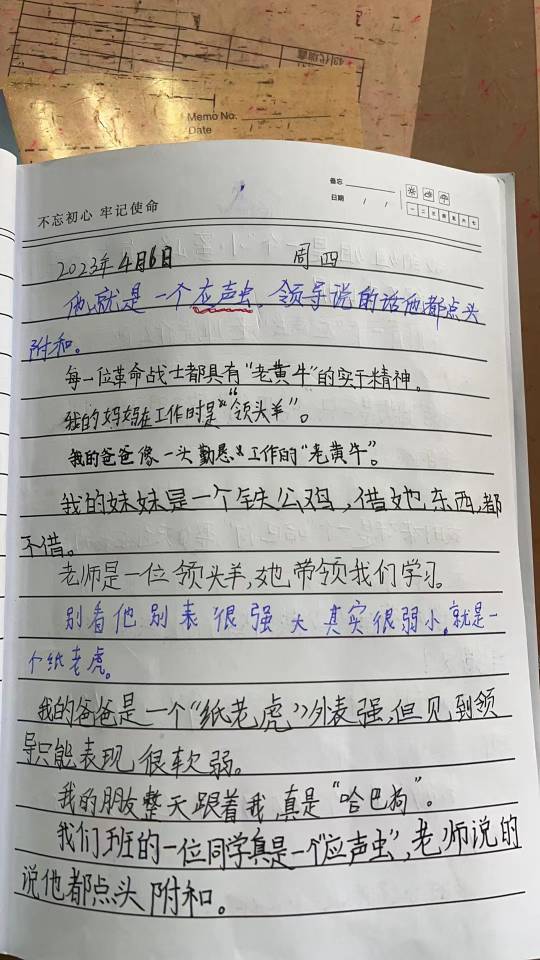 Memo No.
Date
不忘初心 牢记使命
备忘
日期 / /
一 二 三 四 五 六 七
2023年4月6日 周四
他就是一个应声虫,领导说的话他都点头
附和。
每一位革命战士都具有"老黄牛"的实干精神。
我的妈妈在工作时是"领头羊"。
我的爸爸像一头勤恳工作的"老黄牛"。
我的妹妹是一个铁公鸡,借她东西,都
不借。
老师是一位领头羊,她带领我们学习。
别看他别表很强大其实很弱小。就是一
个纸老虎。
我的爸爸是一个"纸老虎"外表强,但见到领
导只能表现很软弱。
我的朋友整天跟着我,真是"哈巴狗"。
我们班的一位同学真是一个"应声虫",老师说的
说他都点头附和。